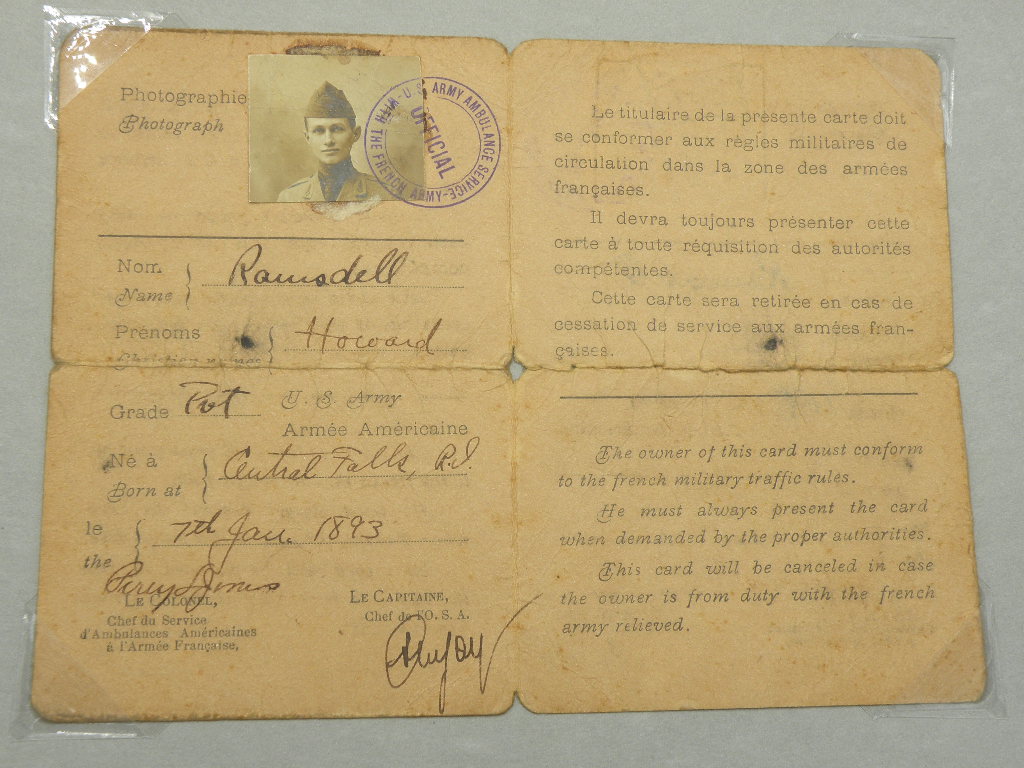 Photographie
Photograph
U.S. ARMY AMBULANCE SERVICE - WITH THE FRENCH ARMY -
OFFICIAL
Nom Ramsdell
Name
Prénoms Howard
Christian names
Grade Pvt U. S. Army
Armée Américaine
Né à Central Falls, R.I.
Born at
le 7th Jan. 1893
the
Percy L Jones
LE COLONEL,
Chef du Service
d'Ambulances Américaines
à l'Armée Française,
LE CAPITAINE,
Chef de l'O. S. A.
Le titulaire de la présente carte doit
se conformer aux règles militaires de
circulation dans la zone des armées
françaises.
Il devra toujours présenter cette
carte à toute réquisition des autorités
compétentes.
Cette carte sera retirée en cas de
cessation de service aux armées fran-
çaises.
The owner of this card must conform
to the french military traffic rules.
He must always present the card
when demanded by the proper authorities.
This card will be canceled in case
the owner is from duty with the french
army relieved.